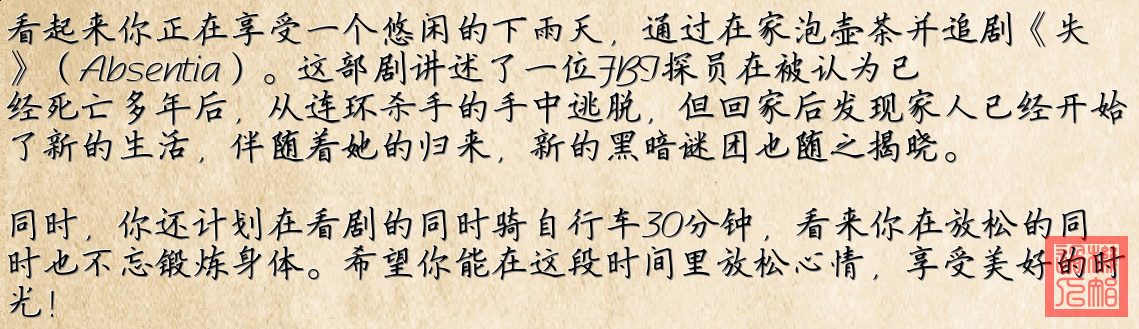 看起来你正在享受一个悠闲的下雨天，通过在家泡壶茶并追剧《失
》（Absentia）。这部剧讲述了一位FBI探员在被认为已
经死亡多年后，从连环杀手的手中逃脱，但回家后发现家人已经开始
了新的生活，伴随着她的归来，新的黑暗谜团也随之揭晓。
同时，你还计划在看剧的同时骑自行车30分钟，看来你在放松的同
时也不忘锻炼身体。希望你能在这段时间里放松心情，享受美好的时
光！